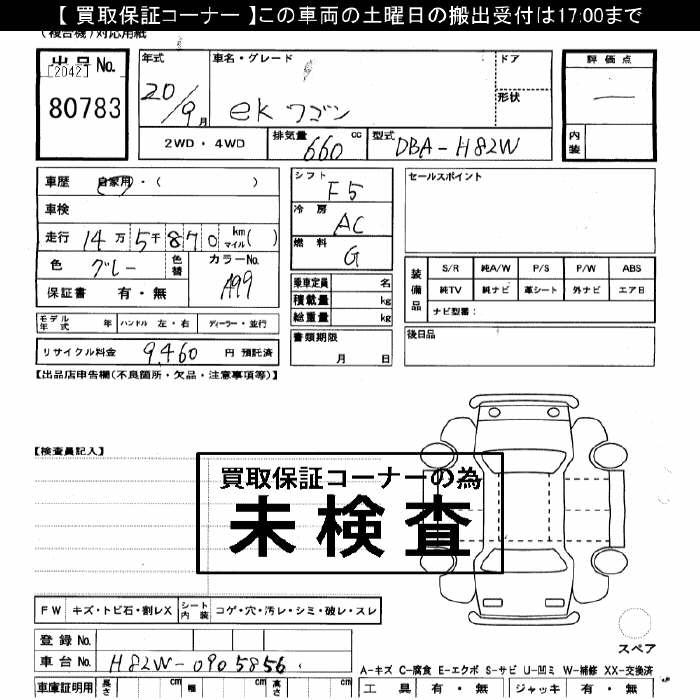 【 買取保証コーナー 】この車両の土曜日の搬出受付は17:00まで
(複合機)対応用紙
出品No.
[2042]
80783
年式
20/9月
車名・グレード
eKワゴン
ドア
形状
2WD・4WD
排気量 660 cc
型式 DBA-H82W
評価点
—
内装
車歴 自家用・( )
車検
走行 14万5千870 km マイル( )
色 グレー 色替 カラーNo. A99
保証書 有・無
モデル年式 年 ハンドル 左・右 ディーラー・並行
リサイクル料金 9,460 円 預託済
シフト F5
冷房 AC
燃料 G
乗車定員 名
積載量 kg
総重量 kg
書類期限
月 日
セールスポイント
装備品
S/R 純A/W P/S P/W ABS
純TV 純ナビ 革シート 外ナビ エアB
ナビ型番:
後日品
【出品店申告欄(不良箇所・欠品・注意事項等)】
【検査員記入】
買取保証コーナーの為
未検査
FW キズ・トビ石・割レX シート内装 コゲ・穴・汚レ・シミ・破レ・スレ
登録No.
車台No. H82W-0905856
車庫証明用 長さ cm 幅 cm 高さ cm
スペア
A-キズ C-腐食 E-エクボ S-サビ U-凹ミ W-補修 XX-交換済
工具 有・無 ジャッキ 有・無